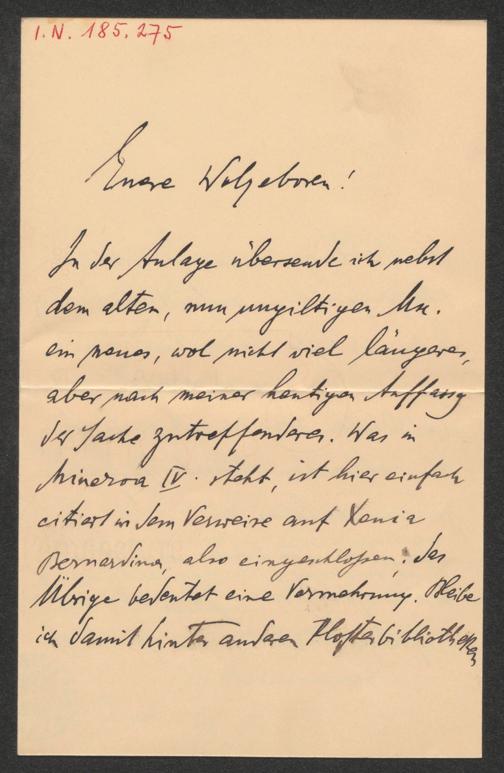 I.N. 185.275
Euere Wolgeboren!
In der Anlage übersende ich nebst
dem alten, nun ungiltigen Mx.
ein neues, wol nicht viel längeres,
aber nach meiner heutigen Auffassg
der Sache zutreffenderes. Was in
Minerva IV. steht, ist hier einfach
citiert in dem Verweise auf Xenia
Bernardina, also eingeschlossen; das
Übrige bedeutet eine Vermehrung. Bleibe
ich damit hinter anderen Klosterbibliotheken